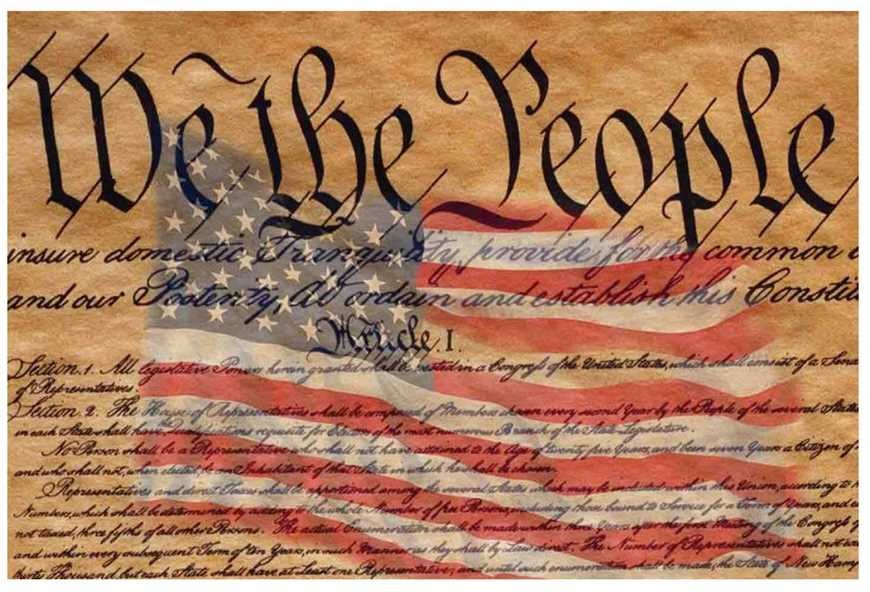 We the People
insure domestic Tranquility, provide for the common
and our Posterity, do ordain and establish this Constitu
Article. I.
Section. 1. All legislative Powers herein granted shall be vested in a Congress of the United States, which shall consist of a Sena
of Representatives.
Section. 2. The House of Representatives shall be composed of Members chosen every second Year by the People of the several States
in each State shall have Qualifications requisite for Electors of the most numerous Branch of the State Legislature.
No Person shall be a Representative who shall not have attained to the Age of twenty five Years, and been seven Years a Citizen of
and who shall not, when elected, be an Inhabitant of that State in which he shall be chosen.
Representatives and direct Taxes shall be apportioned among the several States which may be included within this Union, according to
Numbers, which shall be determined by adding to the whole Number of free Persons, including those bound to Service for a Term of Years, and
not taxed, three fifths of all other Persons. The actual Enumeration shall be made within three Years after the first Meeting of the Congress of
and within every subsequent Term of ten Years, in such Manner as they shall by Law direct. The Number of Representatives shall not
thirty Thousand, but each State shall have at Least one Representative; and until such enumeration shall be made, the State of New Hamp